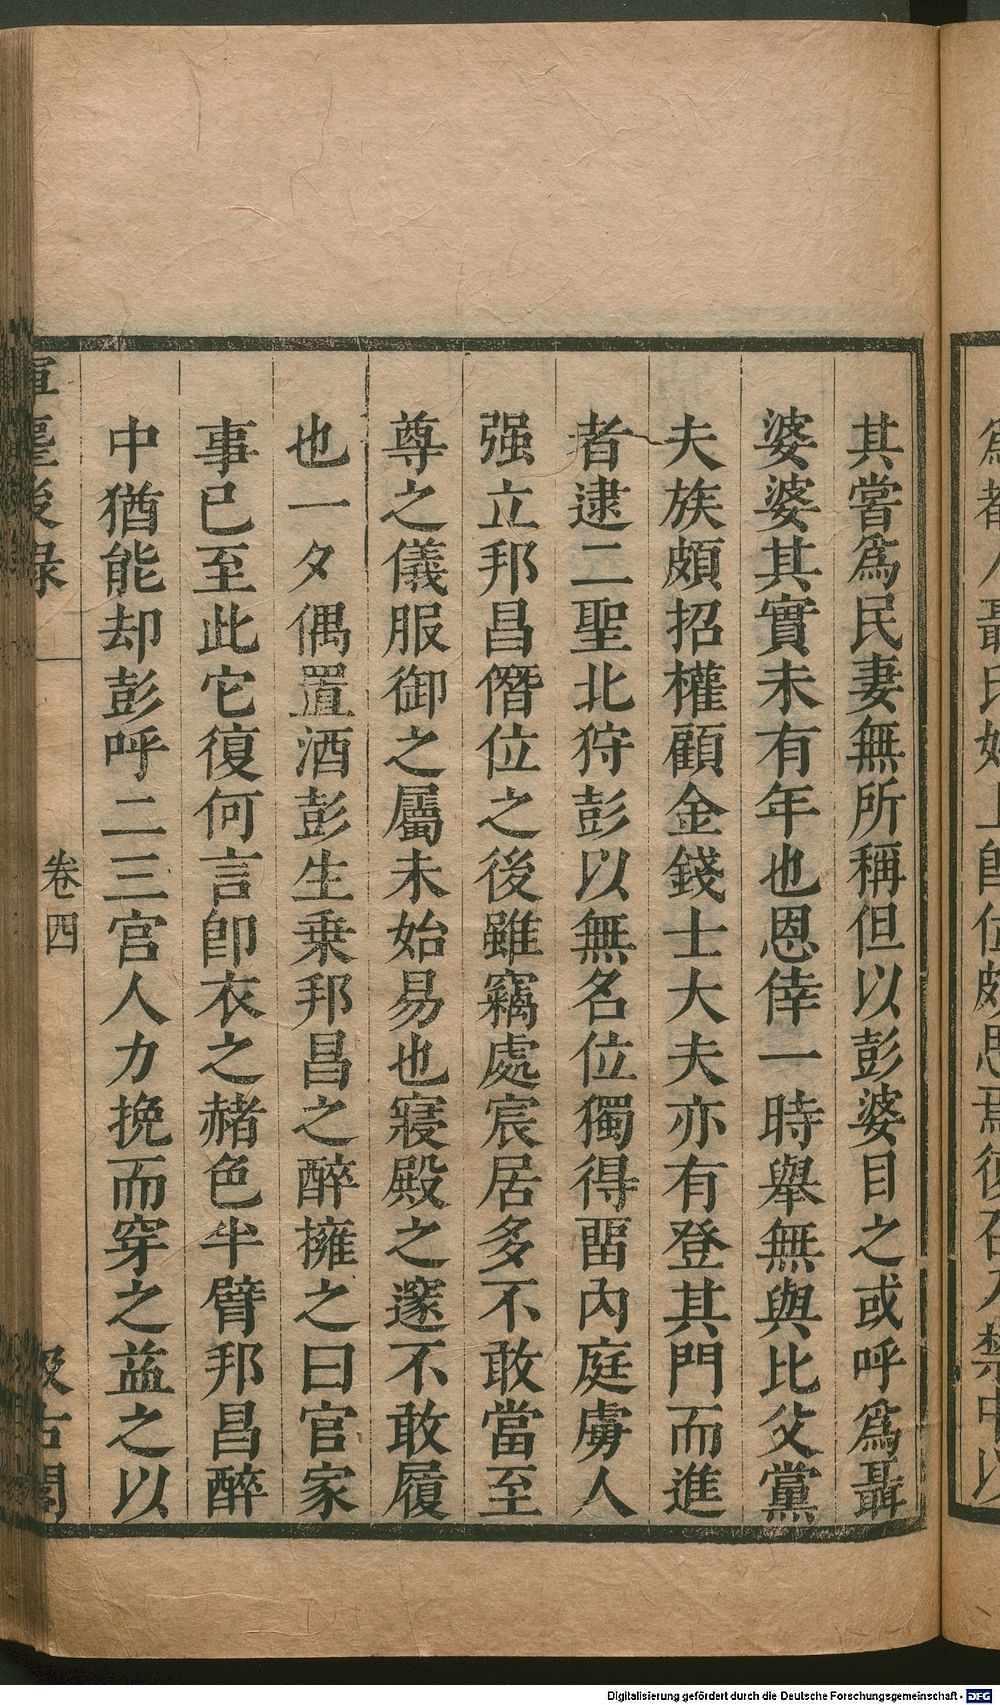 其嘗爲民妻無所稱但以彭婆目之或呼爲聶
婆婆其實未有年也恩倖一時舉無與比父黨
夫族頗招權顧金錢士大夫亦有登其門而進
者逮二聖北狩彭以無名位獨得畱內庭虜人
强立邦昌僭位之後雖竊處宸居多不敢當至
尊之儀服御之屬未始易也寢殿之邃不敢履
也一夕偶置酒彭生乗邦昌之醉擁之曰官家
事已至此它復何言卽衣之赭色半臂邦昌醉
中猶能却彭呼二三宮人力挽而穿之益之以
後録
卷四
汲古閣
Digitalisierung gefördert durch die Deutsche Forschungsgemeinschaft - DFG